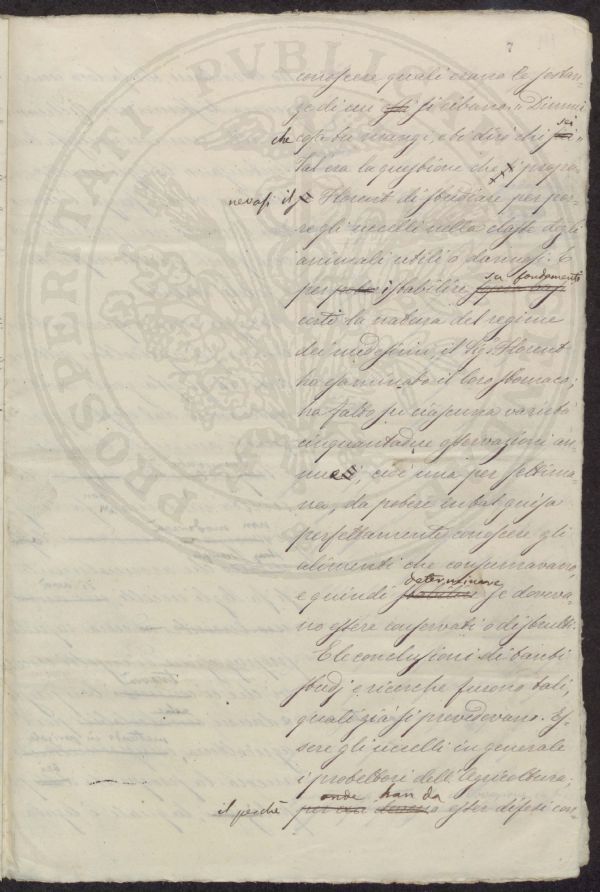 7
conoscere quali erano le sostan-
ze di cui si cibano. "Dimmi
che cosa tu mangi, e ti dirò chi sei"
Tal era la questione che propo-
nevasi il Sr Florent di studiare per por-
re gli uccelli nella classe degli
animali utili o dannosi. E
per istabilire su fondamenti
certi la natura del regime
dei medesimi, il Sigr Florent
ha esaminato il loro stomaco;
ha fatto su ciascuna varietà
cinquantadue osservazioni an-
nue, cioè una per settima-
na, da potere in tal guisa
perfettamente conoscere gli
alimenti che consumavano,
e quindi determinare se doveva-
no essere conservati o distrutti.
E le conclusioni di tanti
studj e ricerche furono tali,
quali già si prevedevano. Es-
sere gli uccelli in generale
i protettori dell'Agricoltura;
il perchè onde han da esser difesi con-
PROSPERITATI PVBLICAE